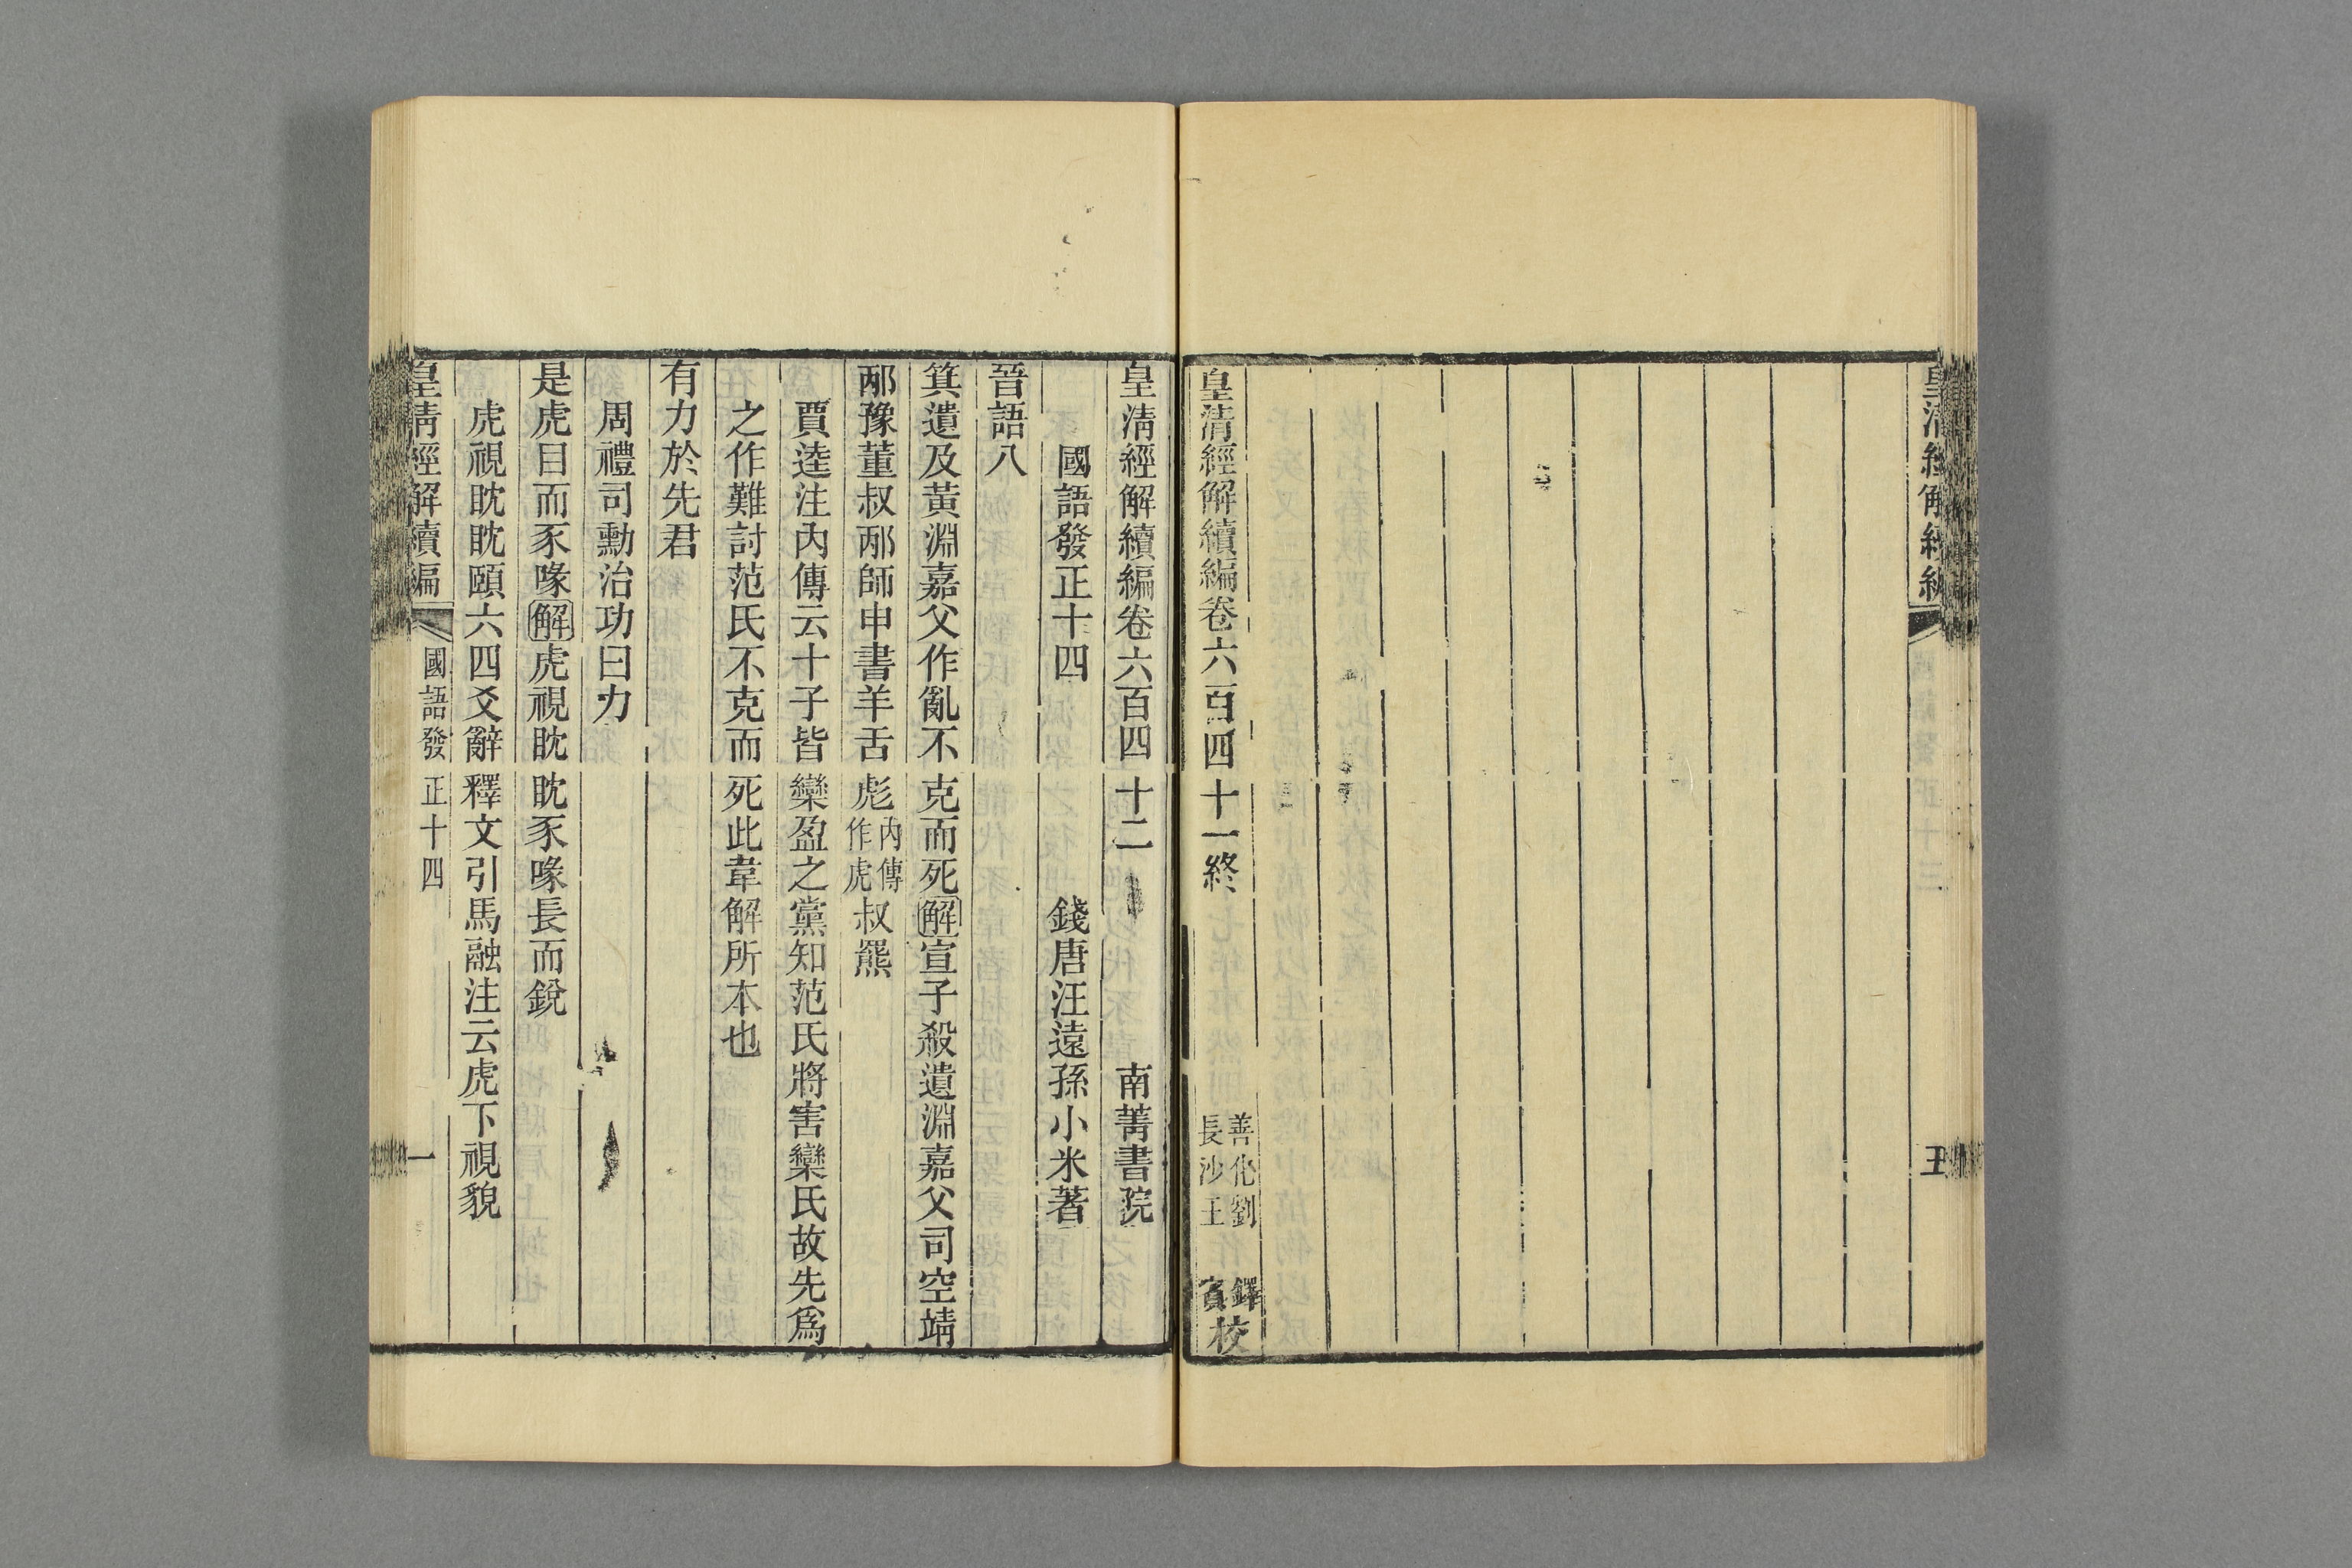 皇清經解續編
五
皇清經解續編卷六百四十一終
善化劉鐸
長沙王賓
校
皇清經解續編卷六百四十二
南菁書院
國語發正十四
錢唐汪遠孫小米著
晉語八
箕遺及黃淵嘉父作亂不克而死解宣子殺遺淵嘉父司空靖
邴豫董叔邴師申書羊舌彪內傳作虎叔羆
賈逵注內傳云十子皆欒盈之黨知范氏將害欒氏故先爲
之作難討范氏不克而死此韋解所本也
有力於先君
周禮司勳治功曰力
是虎目而豕喙解虎視眈眈豕喙長而銳
虎視眈眈頤六四爻辭釋文引馬融注云虎下視貌
皇清經解續編
國語發正十四
一